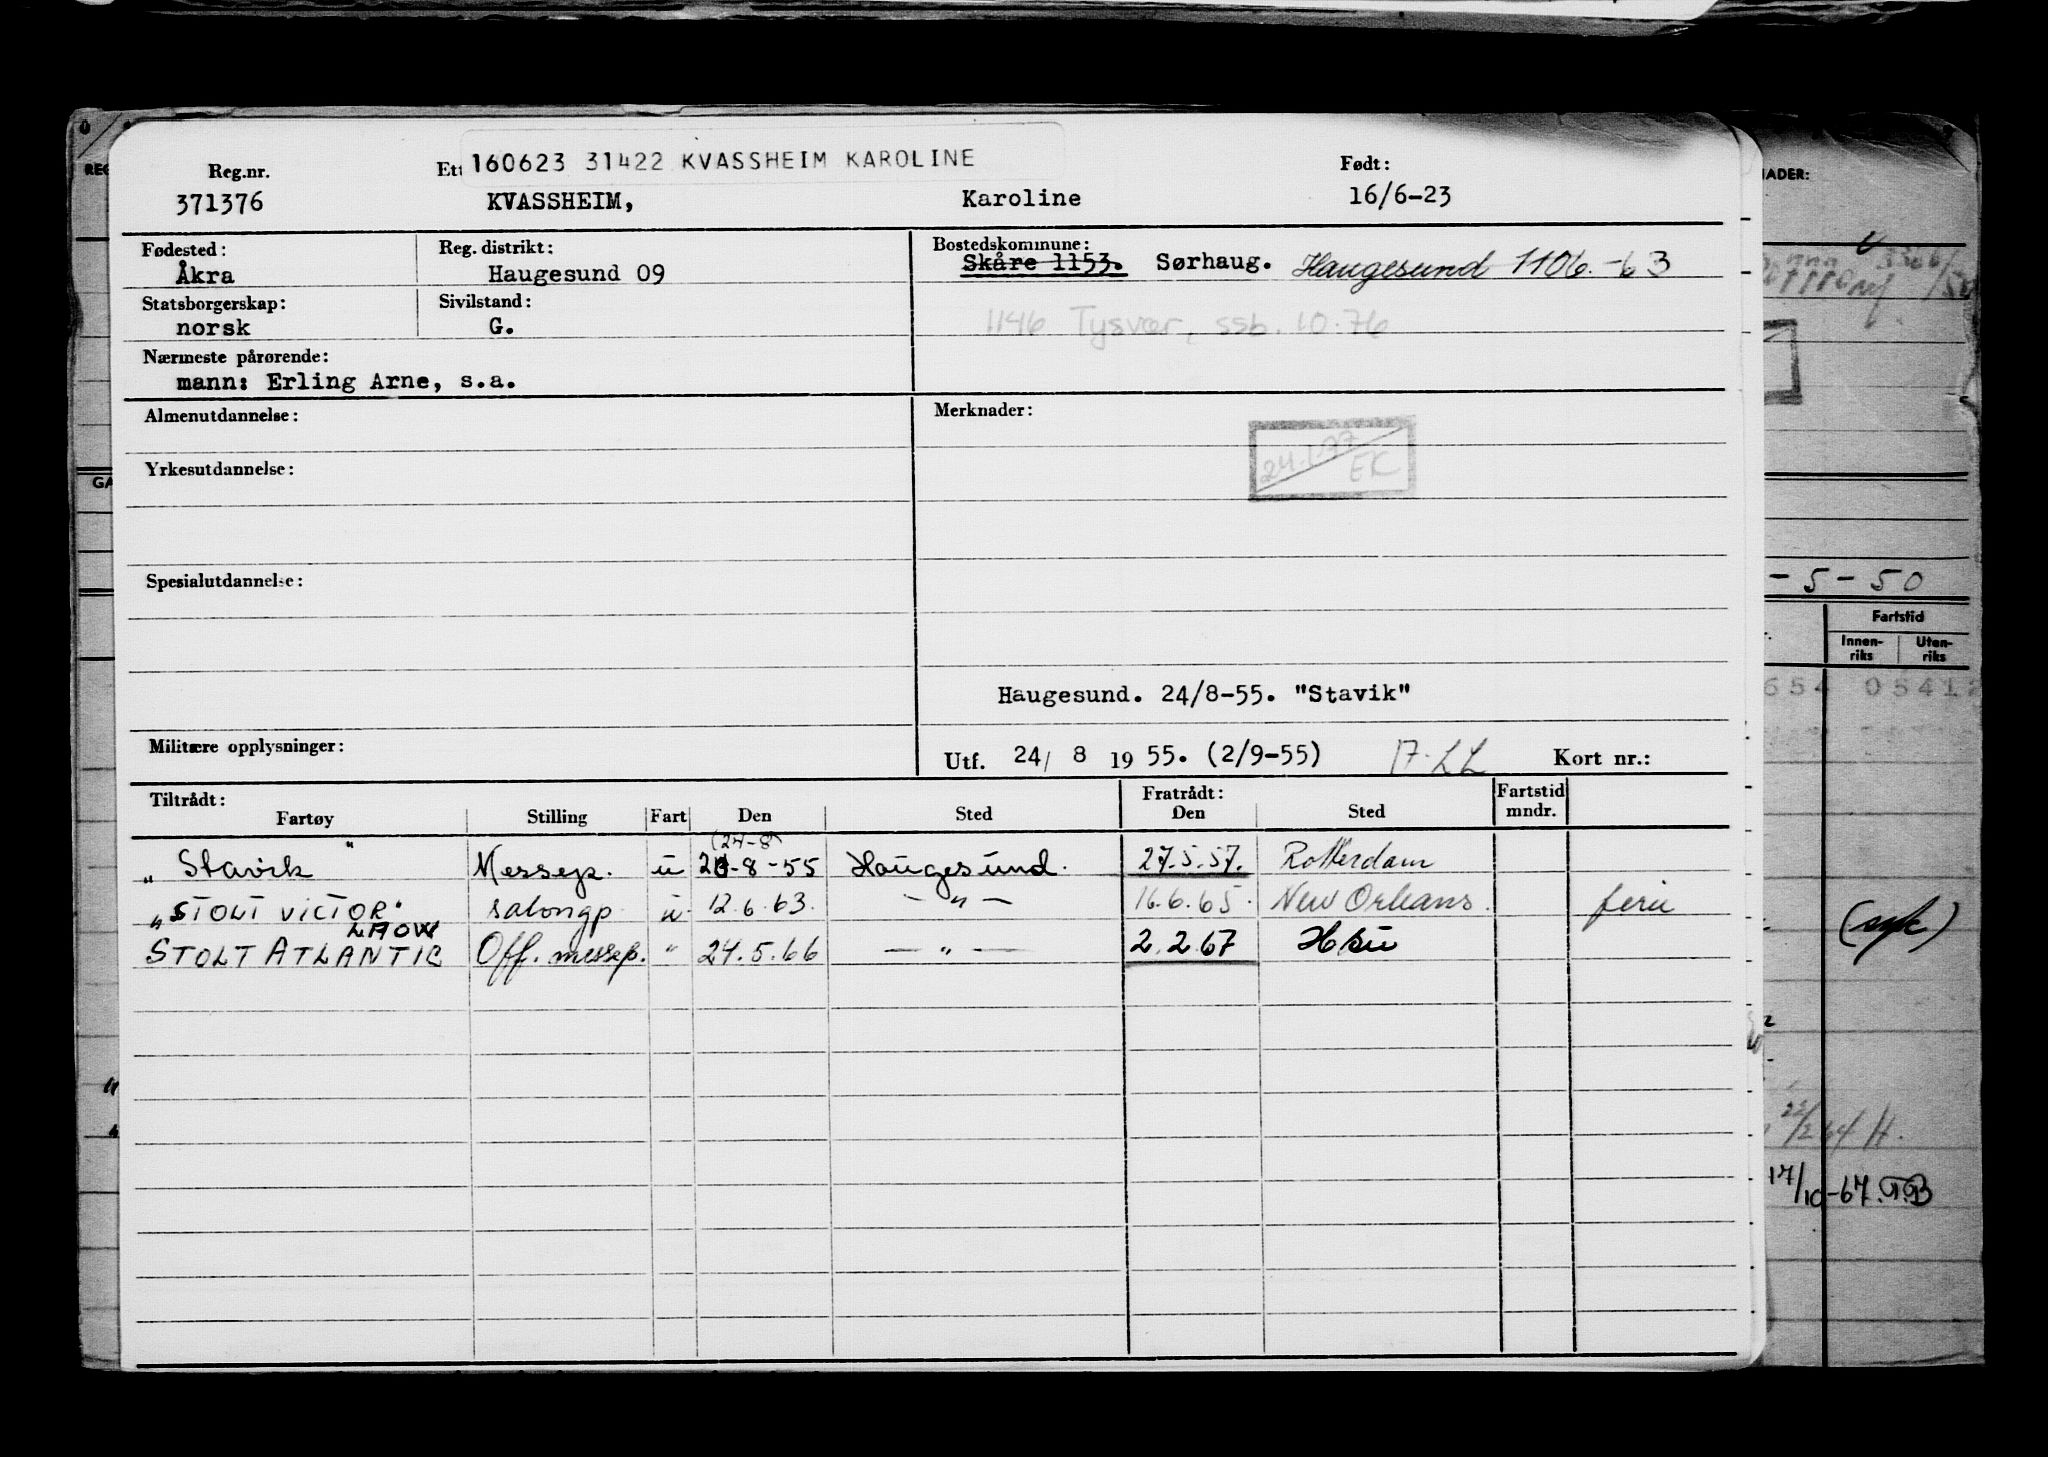 160623 31422 KVASSHEIM KAROLINE
Reg.nr. Ett Født:
371376 KVASSHEIM, Karoline 16/6-23
Fødested: Reg. distrikt: Bostedskommune:
Åkra Haugesund 09 Skåre 1153. Sørhaug. Haugesund 1106.-63
Statsborgerskap: Sivilstand:
norsk G. 1146 Tysvær, ssb. 10.76
Nærmeste pårørende:
mann: Erling Arne, s.a.
Almenutdannelse: Merknader:
24.1.77
EK
Yrkesutdannelse:
Spesialutdannelse:
Haugesund. 24/8-55. "Stavik"
Militære opplysninger:
Utf. 24/ 8 1955. (2/9-55) Kort nr.:
Tiltrådt: Fratrådt: Fartstid
Fartøy Stilling Fart Den Sted Den Sted mndr.
(24-8)
„Stavik" Messep. u 23-8-55 Haugesund. 27.5.57. Rotterdam
„STOLT VICTOR" salongp. u. 12.6.63. — „ — 16.6.65. New Orleans. ferie
STOLT ATLANTIC Off. messep. " 24.5.66 — „ — 2.2.67
REG
GA
NADER:
-5-50
Fartstid
Innen-
riks
Uten-
riks
654 05412
(syk)
22/2 64 H.
17/10-67. T.B